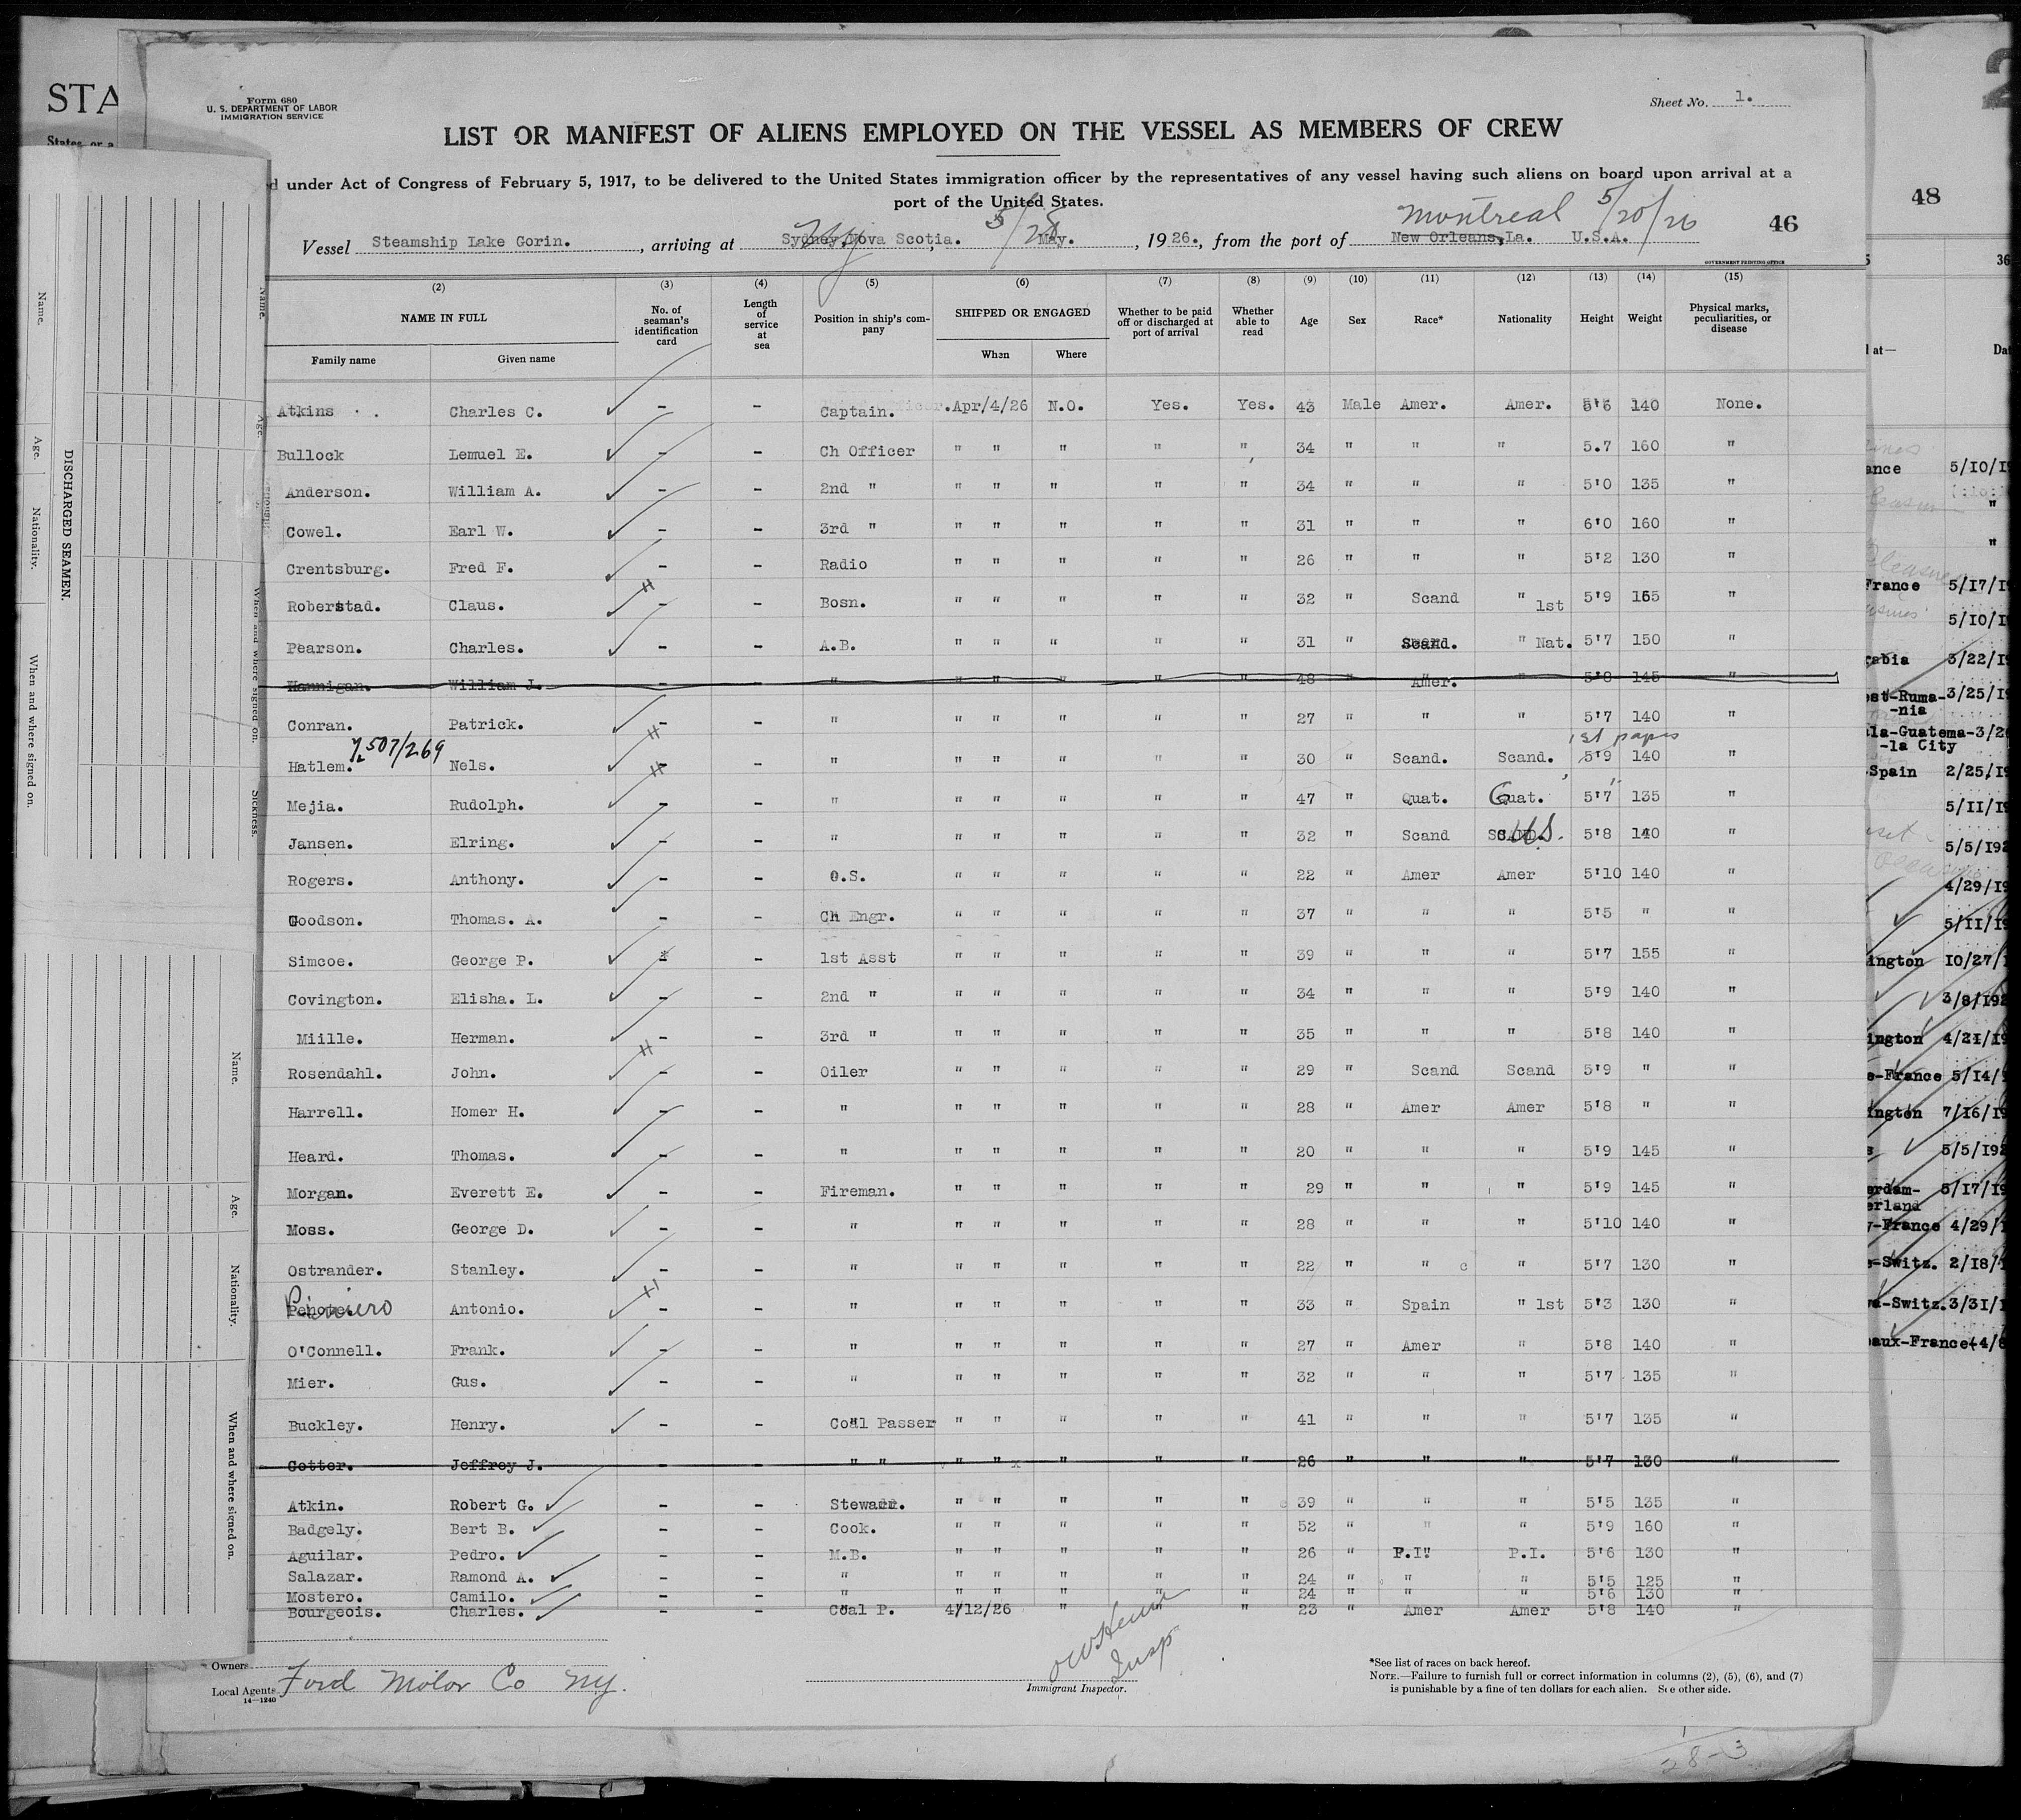 STA
States, or a
Form 680
U. S. DEPARTMENT OF LABOR
IMMIGRATION SERVICE
Sheet No. 1.
LIST OR MANIFEST OF ALIENS EMPLOYED ON THE VESSEL AS MEMBERS OF CREW
d under Act of Congress of February 5, 1917, to be delivered to the United States immigration officer by the representatives of any vessel having such aliens on board upon arrival at a
port of the United States.
Montreal 5/20/26
46
48
Vessel Steamship Lake Gorin. , arriving at Sydney, Nova Scotia. , 5/28 May. , 1926., from the port of New Orleans, La. U.S.A.
GOVERNMENT PRINTING OFFICE
(2) (3) (4) (5) (6) (7) (8) (9) (10) (11) (12) (13) (14) (15)
NAME IN FULL
Family name Given name
No. of seaman's identification card
Length of service at sea
Position in ship's company
SHIPPED OR ENGAGED
When Where
Whether to be paid off or discharged at port of arrival
Whether able to read
Age Sex Race* Nationality Height Weight
Physical marks, peculiarities, or disease
Atkins Charles C. - - Captain. Apr/4/26 N.O. Yes. Yes. 43 Male Amer. Amer. 5'6 140 None.
Bullock Lemuel E. - - Ch Officer " " " " " 34 " " " 5.7 160 "
Anderson. William A. - - 2nd " " " " " " 34 " " " 5'0 135 "
Cowel. Earl W. - - 3rd " " " " " " 31 " " " 6'0 160 "
Crentsburg. Fred F. - - Radio " " " " " 26 " " " 5'2 130 "
Roberstad. Claus. H - - Bosn. " " " " " 32 " Scand " 1st 5'9 165 "
Pearson. Charles. - - A.B. " " " " " 31 " Scand. " Nat. 5'7 150 "
Hannigan. William J. - - " " " " " " 48 " Amer. " 5'8 145 "
Conran. Patrick. - - " " " " " " 27 " " " 5'7 140 "
507/269
1st papes
Hatlem. Nels. H - - " " " " " " 30 " Scand. Scand. 5'9 140 "
Mejia. Rudolph. H - - " " " " " " 47 " Quat. Guat. 5'7 135 "
Jansen. Elring. - - " " " " " " 32 " Scand U.S. 5'8 140 "
Rogers. Anthony. - - O.S. " " " " " 22 " Amer Amer 5'10 140 "
Goodson. Thomas. A. - - Ch Engr. " " " " " 37 " " " 5'5 " "
Simcoe. George P. - - 1st Asst " " " " " 39 " " " 5'7 155 "
Covington. Elisha. L. - - 2nd " " " " " " 34 " " " 5'9 140 "
Miille. Herman. - - 3rd " " " " " " 35 " " " 5'8 140 "
Rosendahl. John. H - - Oiler " " " " " 29 " Scand Scand 5'9 " "
Harrell. Homer H. - - " " " " " " 28 " Amer Amer 5'8 " "
Heard. Thomas. - - " " " " " " 20 " " " 5'9 145 "
Morgan. Everett E. - - Fireman. " " " " " 29 " " " 5'9 145 "
Moss. George D. - - " " " " " " 28 " " " 5'10 140 "
Ostrander. Stanley. - - " " " " " " 22 " " c " 5'7 130 "
Piniero Antonio. H - - " " " " " " 33 " Spain " 1st 5'3 130 "
O'Connell. Frank. - - " " " " " " 27 " Amer " 5'8 140 "
Mier. Gus. - - " " " " " " 32 " " " 5'7 135 "
Buckley. Henry. - - Coal Passer " " " " " 41 " " " 5'7 135 "
Cotter. Jeffrey J. - - " " " " " " " 26 " " " 5'7 130 "
Atkin. Robert G. - - Steward. " " " " " 39 " " " 5'5 135 "
Badgely. Bert B. - - Cook. " " " " " 52 " " " 5'9 160 "
Aguilar. Pedro. - - M.B. " " " " " 26 " P.I. P.I. 5'6 130 "
Salazar. Ramond A. - - " " " " " " 24 " " " 5'5 125 "
Mostero. Camilo. - - " " " " " " 24 " " " 5'6 130 "
Bourgeois. Charles. - - Coal P. 4/12/26 " " " 23 " Amer Amer 5'8 140 "
Owners
Local Agents Ford Motor Co NY.
14—1240
Insp
Immigrant Inspector.
*See list of races on back hereof.
NOTE.—Failure to furnish full or correct information in columns (2), (5), (6), and (7)
is punishable by a fine of ten dollars for each alien. See other side.
28-3
DISCHARGED SEAMEN.
Name.
Age.
Nationality.
When and where signed on.
Name.
Age.
When and where signed on.
Sickness.
Name.
Age.
Nationality.
When and where signed on.
2
36
l at—
Dat
ance 5/10/19
"
"
France 5/17/19
5/10/1
rabia 3/22/19
est-Ruma- 3/25/19
-nia
la-Guatema- 3/2
-la City
Spain 2/25/19
5/11/19
5/5/192
4/29/19
5/11/19
ington 10/27/1
3/8/192
ington 4/21/19
e-France 5/14/
ington 7/16/19
s 5/5/192
erdam- 5/17/19
erland
y-France 4/29/1
e-Switz. 2/18/1
va-Switz. 3/31/1
eaux-France 4/8